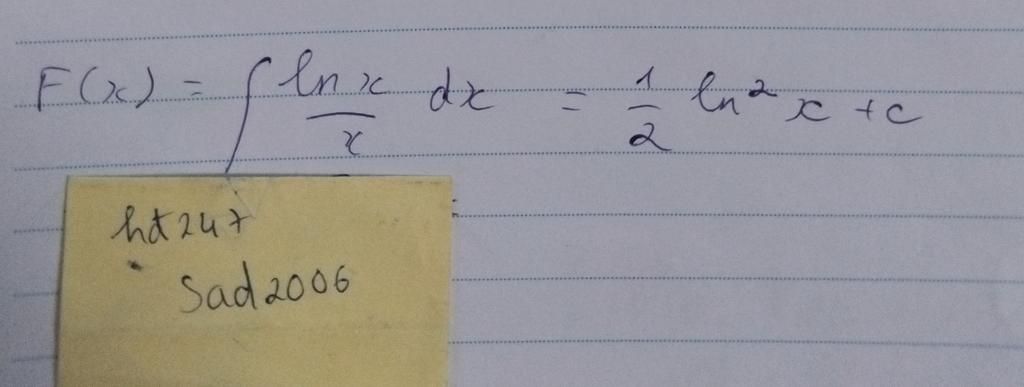 F(x) = ∫ ln x / x dx = 1/2 ln² x + c
hd247
Sad2006